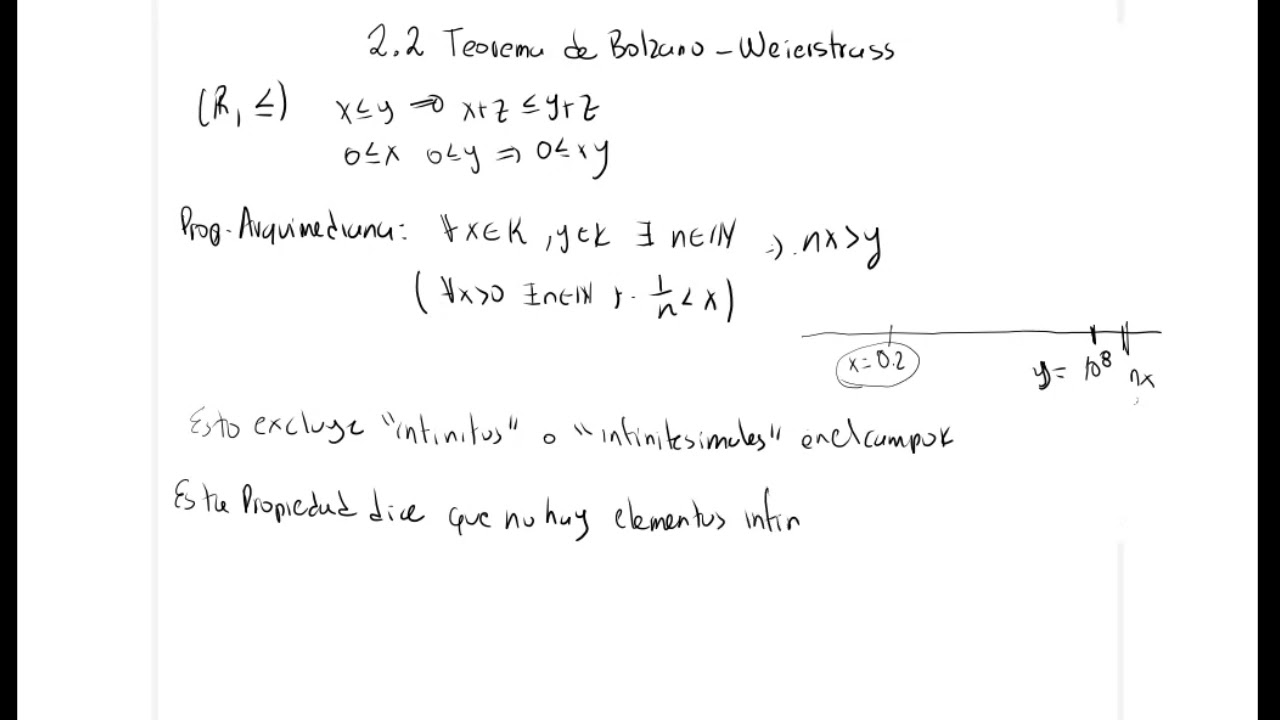 2.2 Teorema de Bolzano - Weierstrass
(R, ≤) x ≤ y ⇒ x+z ≤ y+z
0≤x 0≤y ⇒ 0≤xy
Prop. Arquimediana: ∀x∈K, y∈K ∃ n∈ℕ ∋. nx>y
(∀x>0 ∃n∈ℕ ∋. 1/n < x)
x=0.2 y= 10^8 nx
Esto excluye "infinitos" o "infinitesimales" en el campo K
Esta Propiedad dice que no hay elementos infin